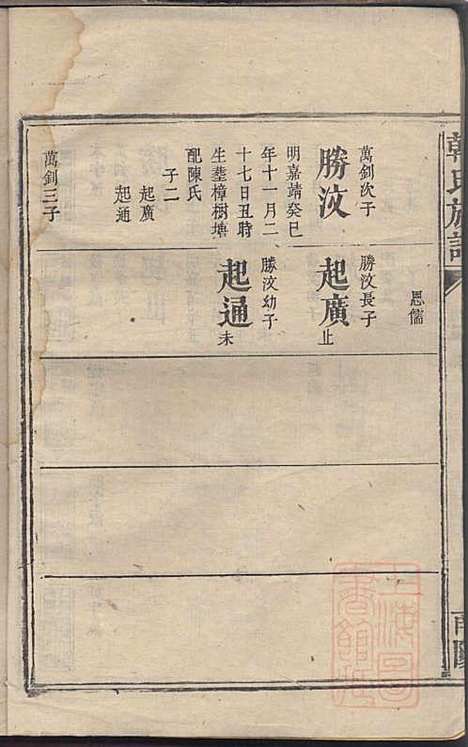 韓氏族譜
南陽
恩儒
萬釗次子
勝汶
明嘉靖癸巳
年十一月二
十七日丑時
生塟樟樹塘
配陳氏
子二
起廣
起通
萬釗三子
勝汶長子
起廣止
勝汶幼子
起通未
上海圖
書館藏